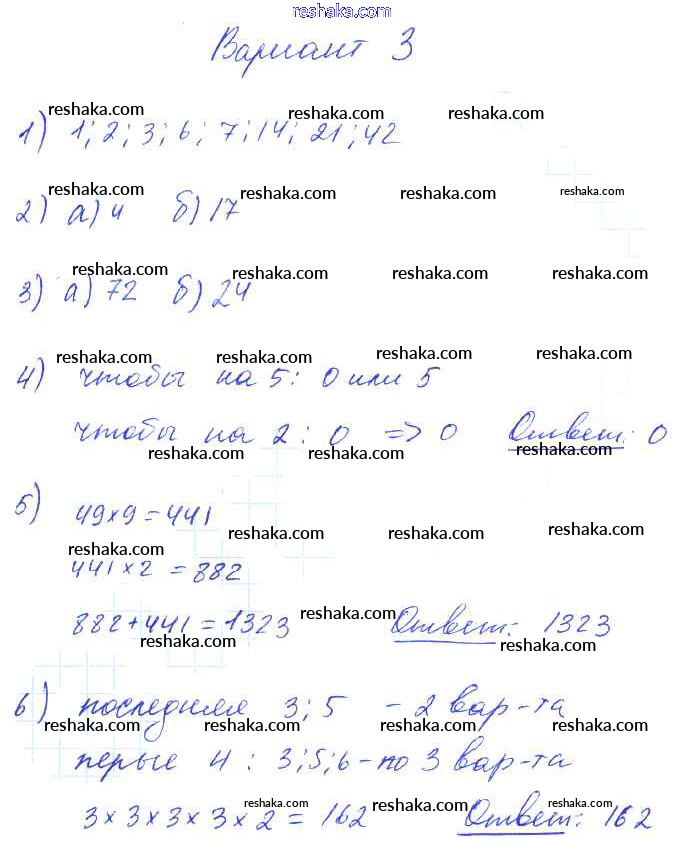 reshaka.com
Вариант 3
reshaka.com reshaka.com reshaka.com
1) 1; 2; 3; 6; 7; 14; 21; 42
reshaka.com reshaka.com reshaka.com reshaka.com
2) а) 4 б) 17
reshaka.com reshaka.com reshaka.com reshaka.com
3) а) 72 б) 24
reshaka.com reshaka.com reshaka.com reshaka.com
4) чтобы на 5: 0 или 5
чтобы на 2: 0 => 0 Ответ: 0
reshaka.com reshaka.com reshaka.com reshaka.com
5) 49×9=441
reshaka.com reshaka.com reshaka.com reshaka.com
441×2 = 882
882+441=1323 Ответ: 1323
reshaka.com reshaka.com
6) последняя 3; 5 - 2 вар-та
reshaka.com reshaka.com reshaka.com reshaka.com
перые 4: 3; 5; 6 - по 3 вар-та
3×3×3×3×2 = 162 Ответ: 162
reshaka.com reshaka.com reshaka.com reshaka.com